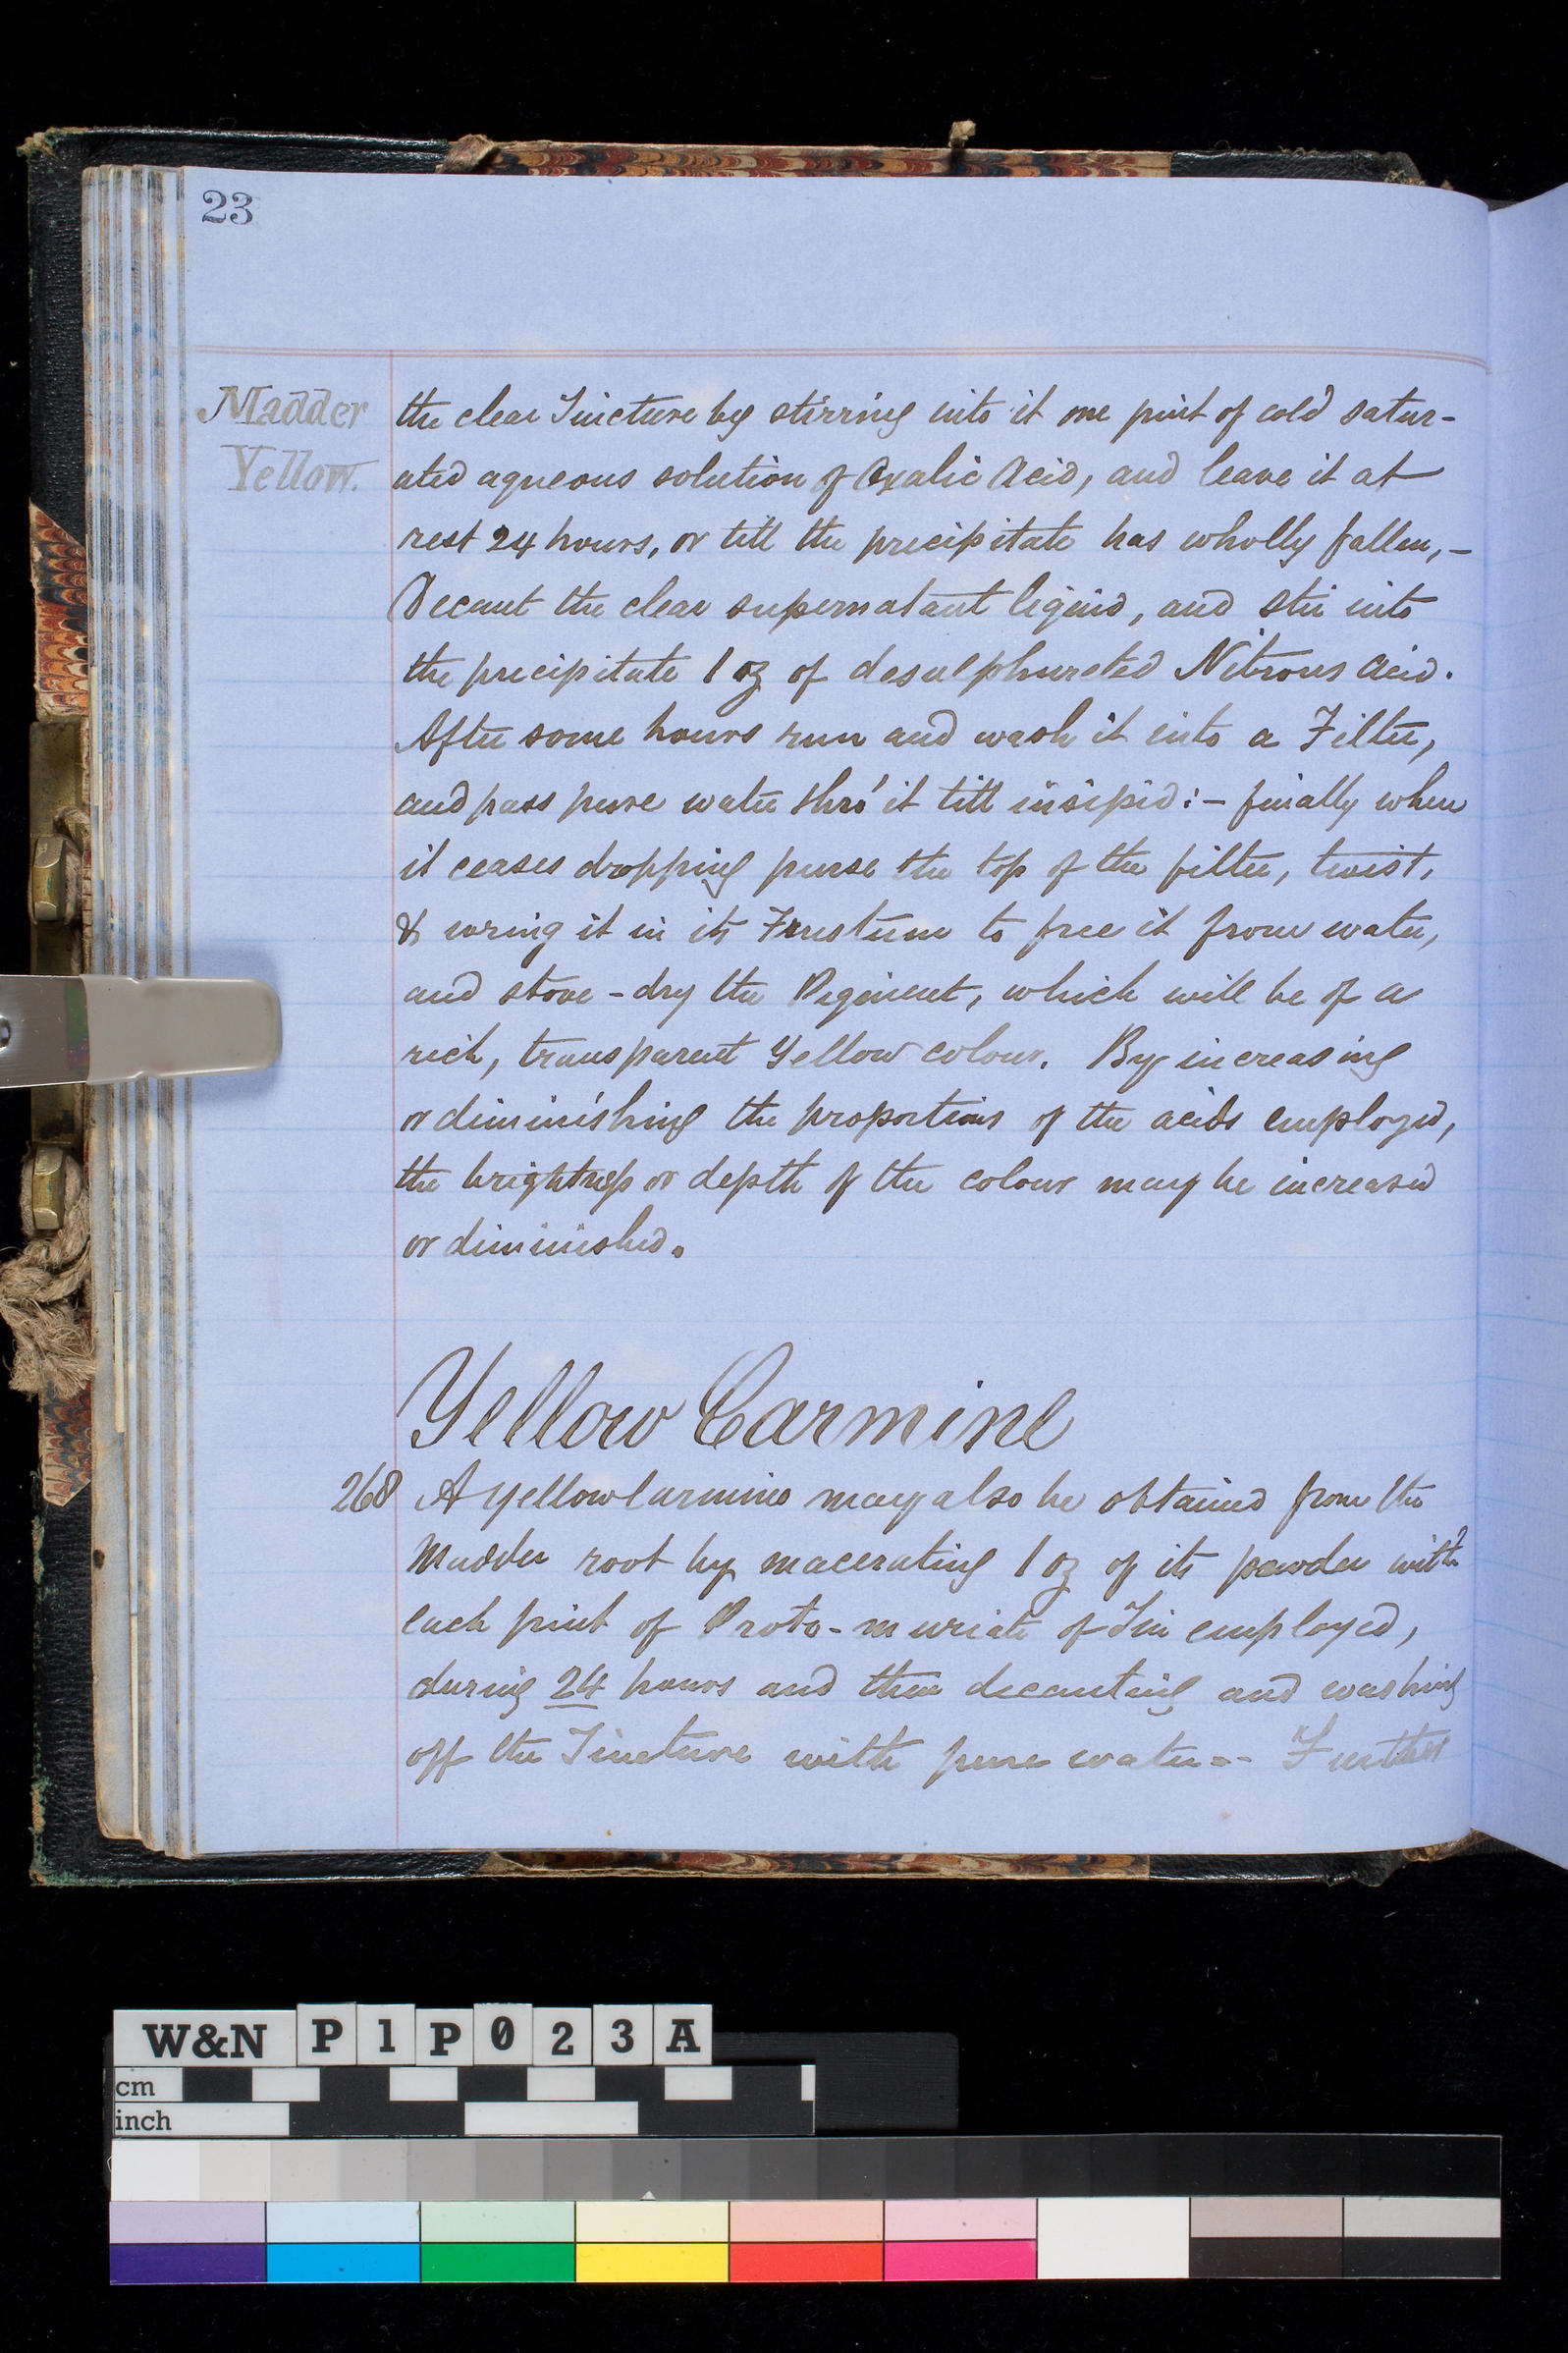 23
Madder
Yellow.
the clear Tincture by stirring into it one pint of cold satur-
ated aqueous solution of Oxalic Acid, and leave it at
rest 24 hours, or till the precipitate has wholly fallen, -
Decant the clear supernatant liquid, and stir into
the precipitate 1 oz of desulphureted Nitrous Acid.
After some hours run and wash it into a Filter,
and pass pure water thro' it till insipid: - finally when
it ceases dropping purse the top of the filter, twist,
& wring it in its Frustum to free it from water,
and stove-dry the Pigment, which will be of a
rich, transparent Yellow colour. By increasing
or diminishing the proportions of the acids employed,
the brightness or depth of the colour may be increased
or diminished.
Yellow Carmine
268 A yellow Carmine may also be obtained from the
Madder root by macerating 1 oz of its powder with
each pint of Proto-muriate of Tin employed,
during 24 hours and then decanting and washing
off the Tincture with pure water -- Further
W&N P1P023A
cm
inch